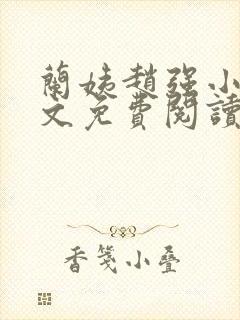 蘭姨趙强小
文免費閱讀
香箋小疊